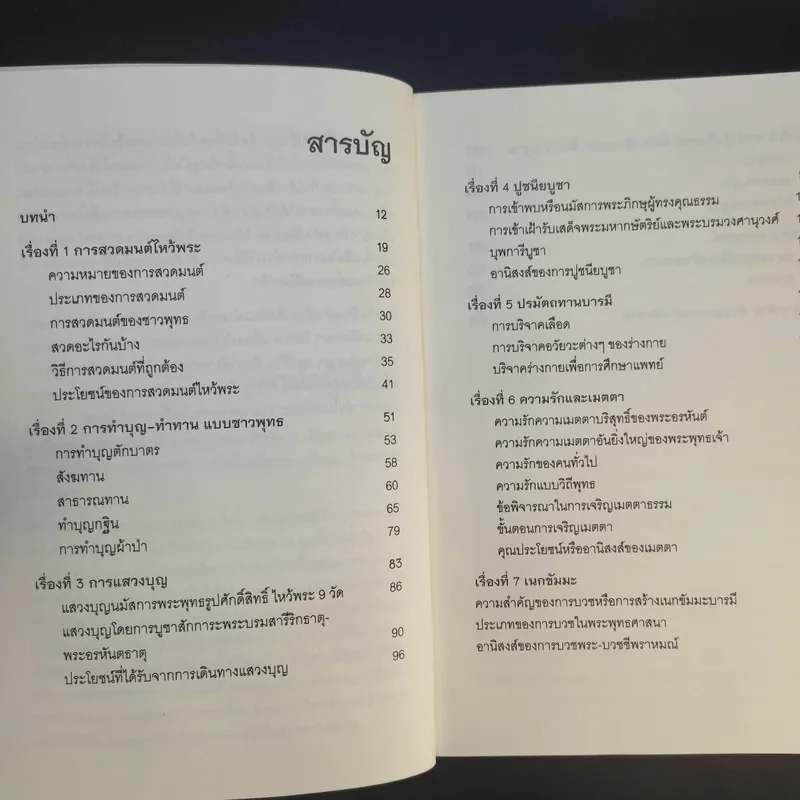 สารบัญ
บทนำ 12
เรื่องที่ 1 การสวดมนต์ไหว้พระ 19
ความหมายของการสวดมนต์ 26
ประเภทของการสวดมนต์ 28
การสวดมนต์ของชาวพุทธ 30
สวดอะไรกันบ้าง 33
วิธีการสวดมนต์ที่ถูกต้อง 35
ประโยชน์ของการสวดมนต์ไหว้พระ 41
เรื่องที่ 2 การทำบุญ-ทำทาน แบบชาวพุทธ 51
การทำบุญตักบาตร 53
สังฆทาน 58
สาธารณทาน 60
ทำบุญกฐิน 65
การทำบุญผ้าป่า 79
เรื่องที่ 3 การแสวงบุญ 83
แสวงบุญนมัสการพระพุทธรูปศักดิ์สิทธิ์ ไหว้พระ 9 วัด 86
แสวงบุญโดยการบูชาสักการะพระบรมสารีริกธาตุ-
พระอรหันตธาตุ 90
ประโยชน์ที่ได้รับจากการเดินทางแสวงบุญ 96
เรื่องที่ 4 ปูชนียบูชา
การเข้าพบหรือนมัสการพระภิกษุผู้ทรงคุณธรรม
การเข้าเฝ้ารับเสด็จพระมหากษัตริย์และพระบรมวงศานุวงศ์
บุพการีบูชา
อานิสงส์ของการปูชนียบูชา
เรื่องที่ 5 ปรมัตถทานบารมี
การบริจาคเลือด
การบริจาคอวัยวะต่างๆ ของร่างกาย
บริจาคร่างกายเพื่อการศึกษาแพทย์
เรื่องที่ 6 ความรักและเมตตา
ความรักความเมตตาบริสุทธิ์ของพระอรหันต์
ความรักความเมตตาอันยิ่งใหญ่ของพระพุทธเจ้า
ความรักของคนทั่วไป
ความรักแบบวิถีพุทธ
ข้อพิจารณาในการเจริญเมตตาธรรม
ขั้นตอนการเจริญเมตตา
คุณประโยชน์หรืออานิสงส์ของเมตตา
เรื่องที่ 7 เนกขัมมะ
ความสำคัญของการบวชหรือการสร้างเนกขัมมะบารมี
ประเภทของการบวชในพระพุทธศาสนา
อานิสงส์ของการบวชพระ-บวชชีพราหมณ์